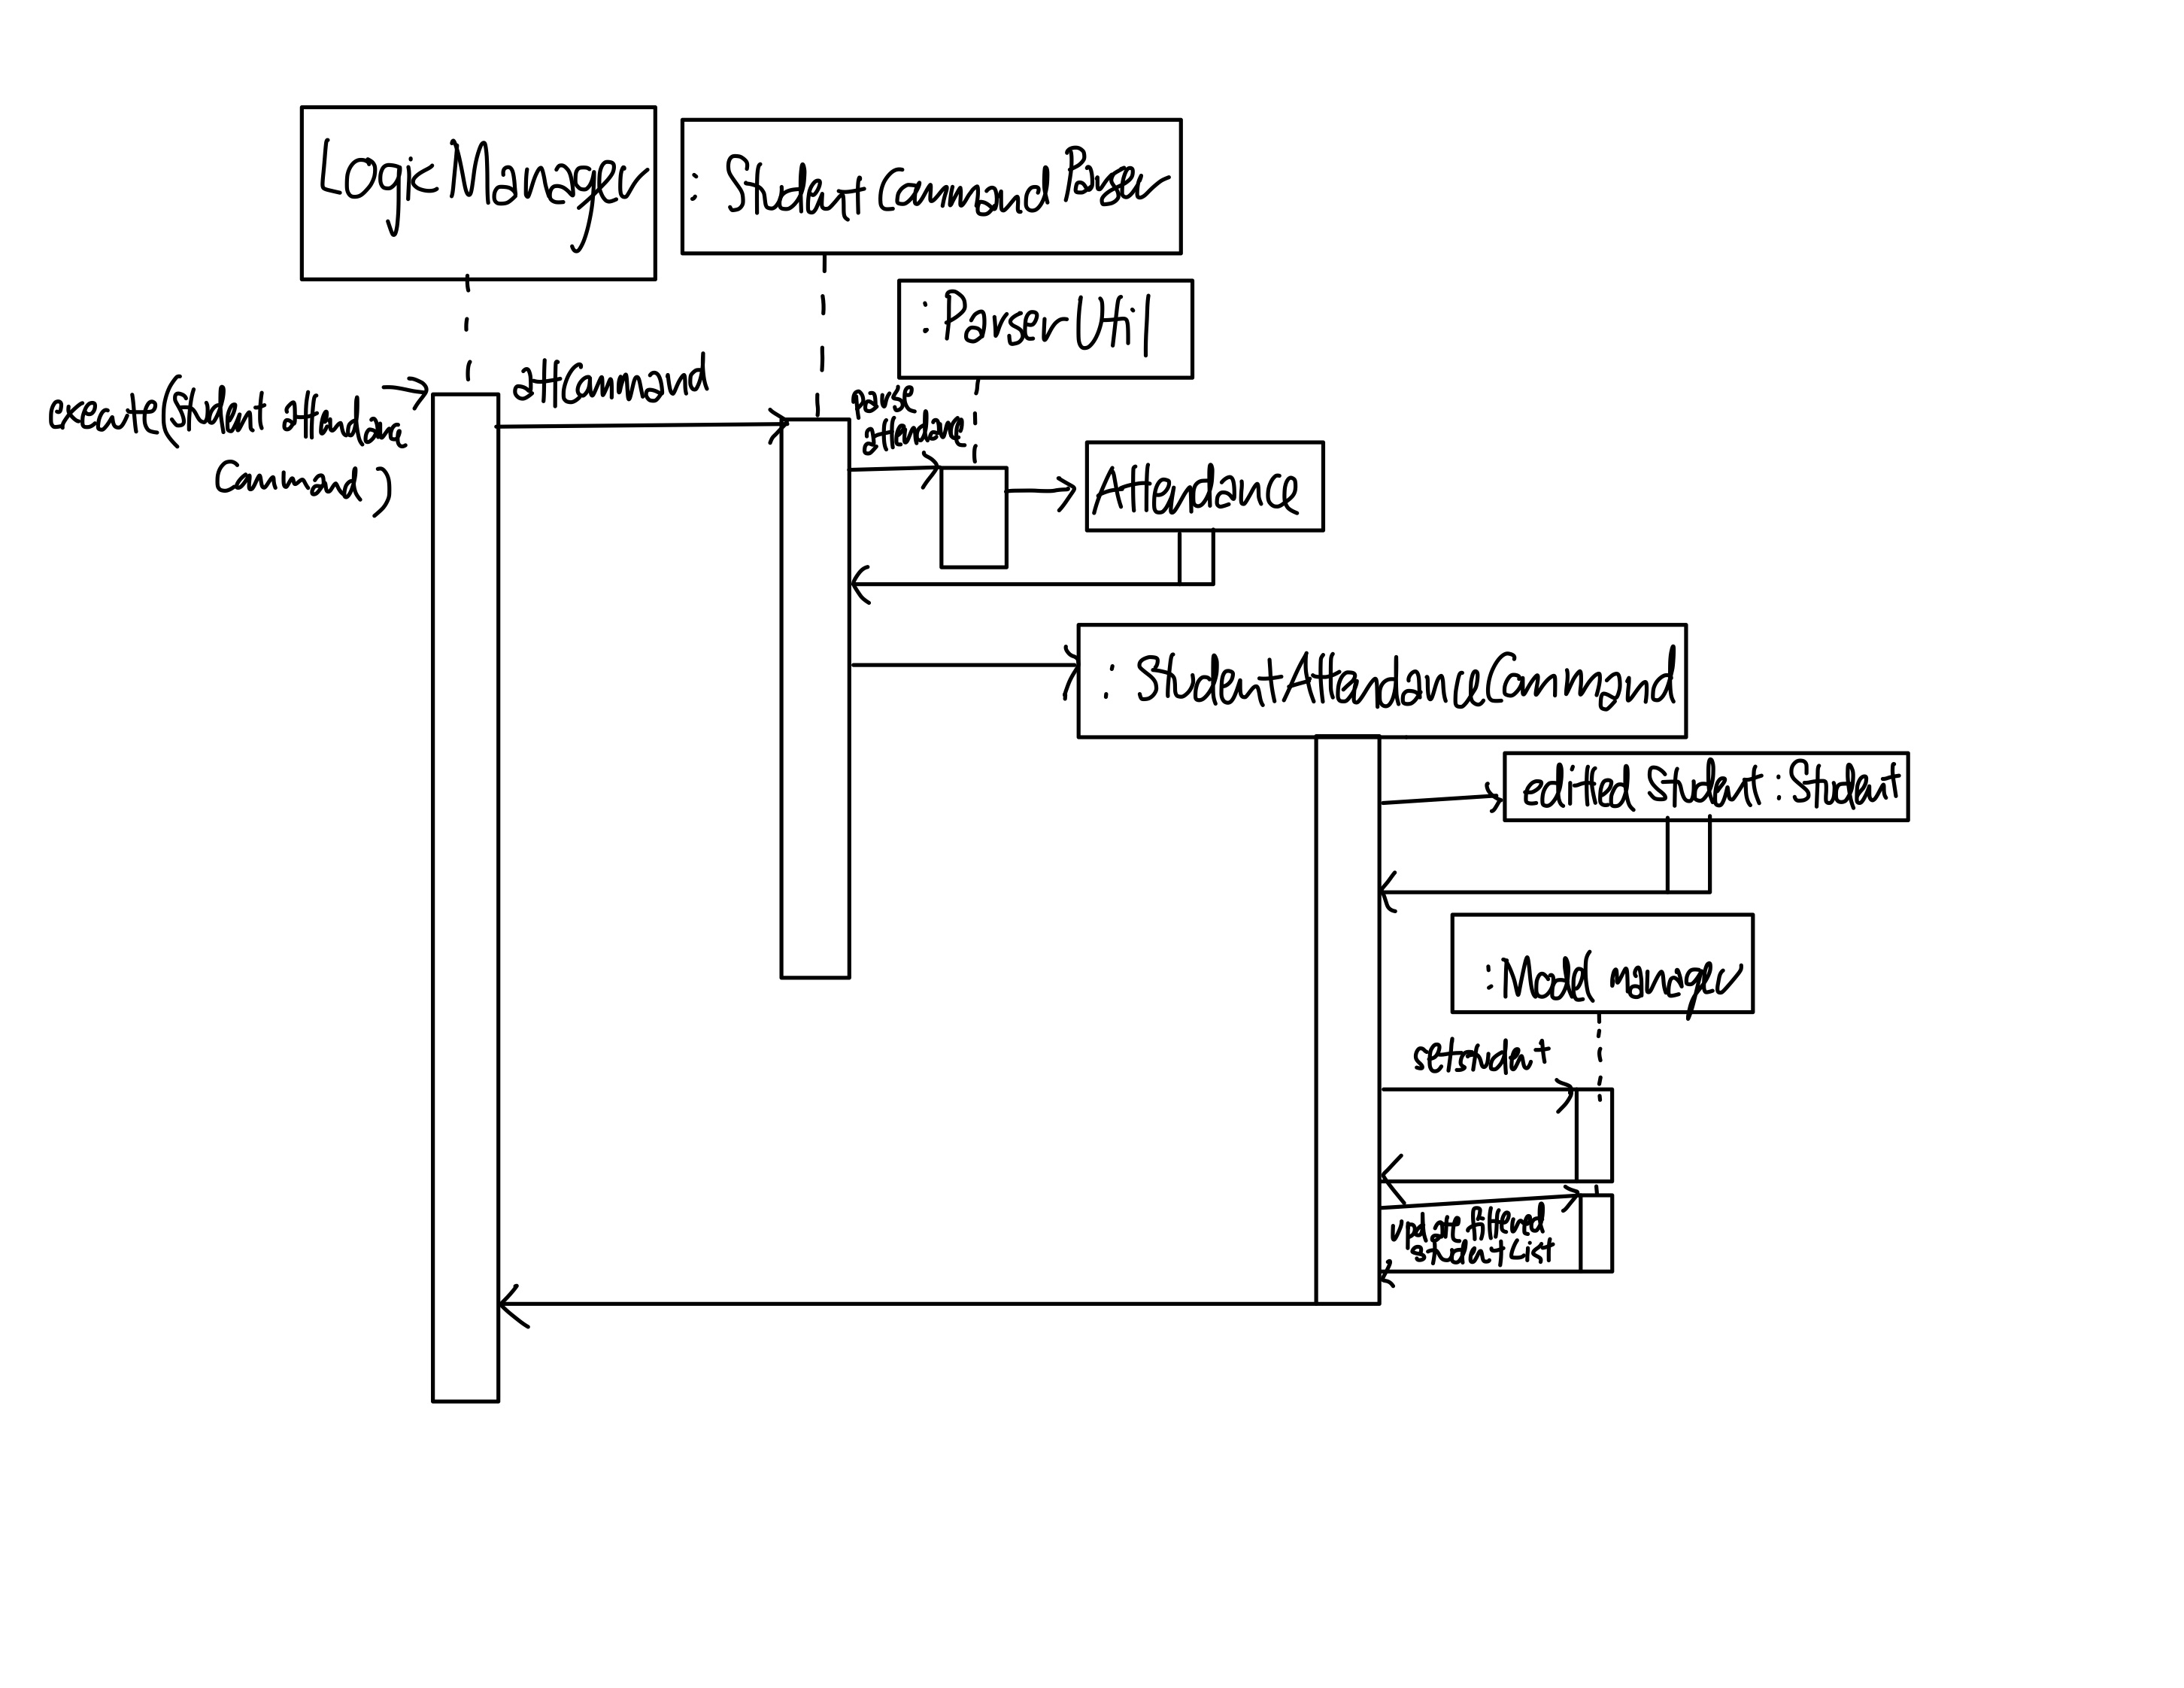 Logic Manager
: Student Command Parser
: Parser Util
execute(Student attendance
Command)
attCommand
parse
attendance
Attendance
: StudentAttendanceCommand
edited Student : Student
: Model manager
setstudent
update filtered
studentList